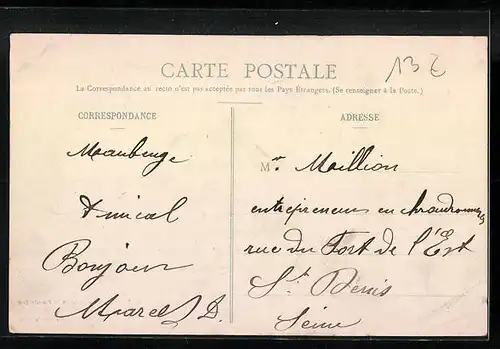 CARTE POSTALE
13 E
La Correspondance au recto n'est pas acceptée par tous les Pays Étrangers. (Se renseigner à la Poste.)
CORRESPONDANCE
Maubeuge
Amical
Bonjour
Marcel D.
ADRESSE
Mr. Maillion
entrepreneur en chaudronnerie
rue du Fort de l'Est
St Denis
Seine